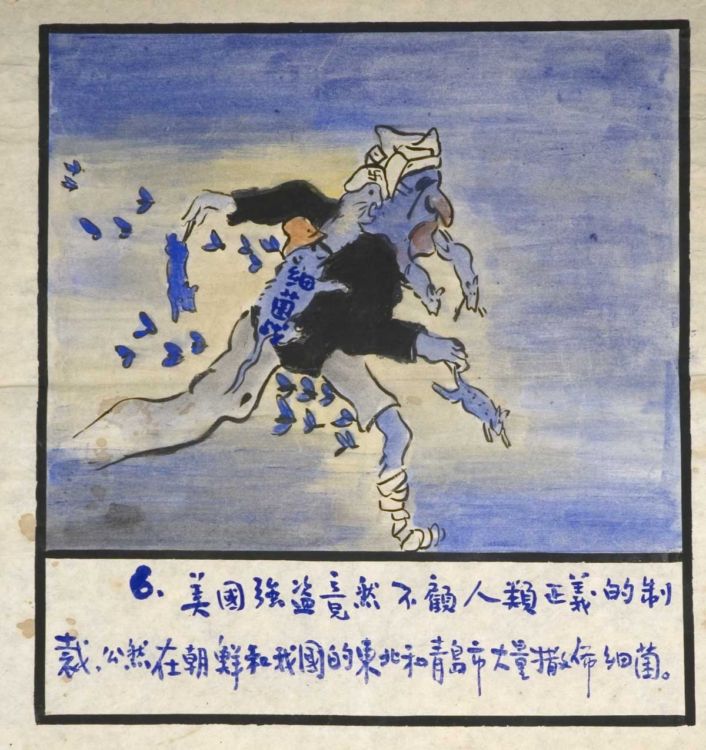 細菌
6. 美國強盜竟然不顧人類正義的制
裁，公然在朝鮮和我國的東北和青島市大量撒佈細菌。